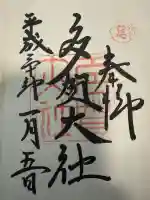 奉拝
多賀大社
平成 年一月五日